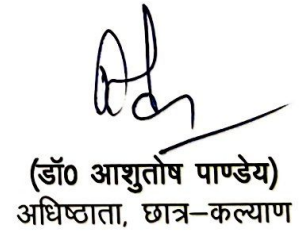 (डॉ0 आशुतोष पाण्डेय)
अधिष्ठाता, छात्र–कल्याण